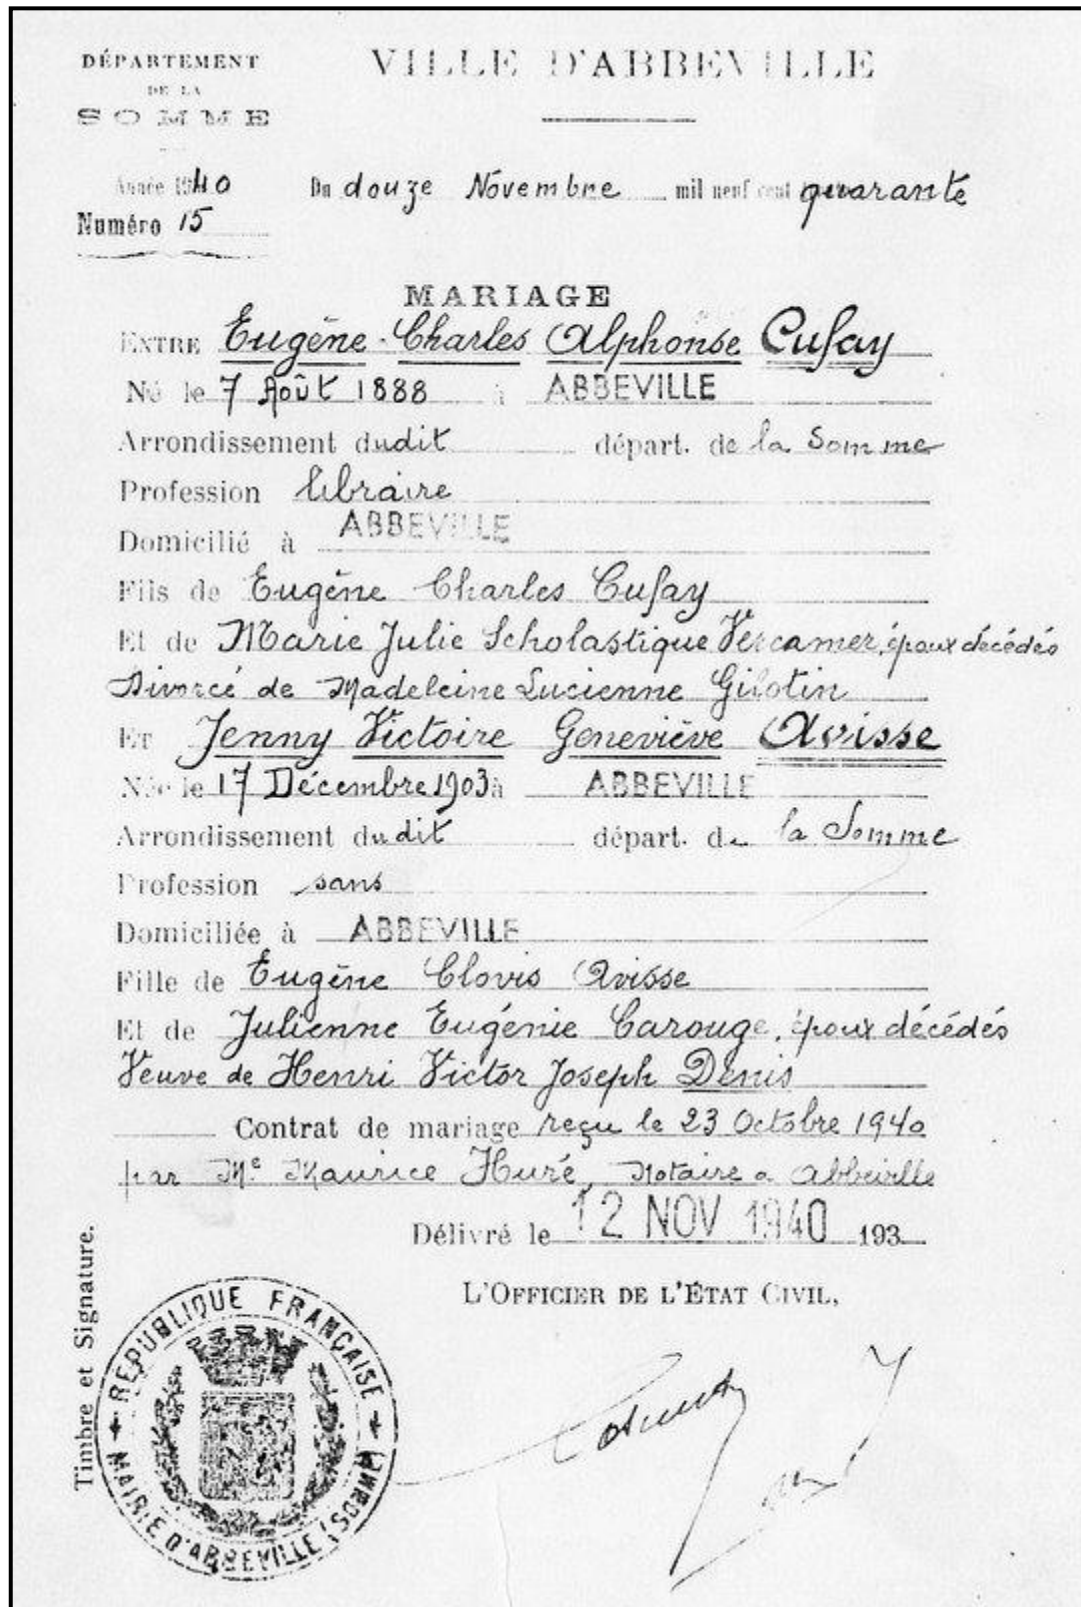 DÉPARTEMENT
DE LA
SOMME
VILLE D'ABBEVILLE
Année 1940
Du douze Novembre mil neuf cent quarante
Numéro 15
MARIAGE
ENTRE Eugène Charles Alphonse Cufay
Né le 7 Août 1888 à ABBEVILLE
Arrondissement dudit départ. de la Somme
Profession libraire
Domicilié à ABBEVILLE
Fils de Eugène Charles Cufay
Et de Marie Julie Scholastique Vercamer, époux décédés
Divorcé de Madeleine Lucienne Gilotin
ET Jenny Victoire Geneviève Avisse
Née le 17 Décembre 1903 à ABBEVILLE
Arrondissement dudit départ. de la Somme
Profession sans
Domiciliée à ABBEVILLE
Fille de Eugène Clovis Avisse
Et de Julienne Eugénie Carouge, époux décédés
Veuve de Henri Victor Joseph Denis
Contrat de mariage reçu le 23 Octobre 1940
par Me Maurice Huré, Notaire a Abbeville
Délivré le 12 NOV 1940 193
L'OFFICIER DE L'ÉTAT CIVIL,
Timbre et Signature.
RÉPUBLIQUE FRANÇAISE
MAIRIE D'ABBEVILLE (SOMME)